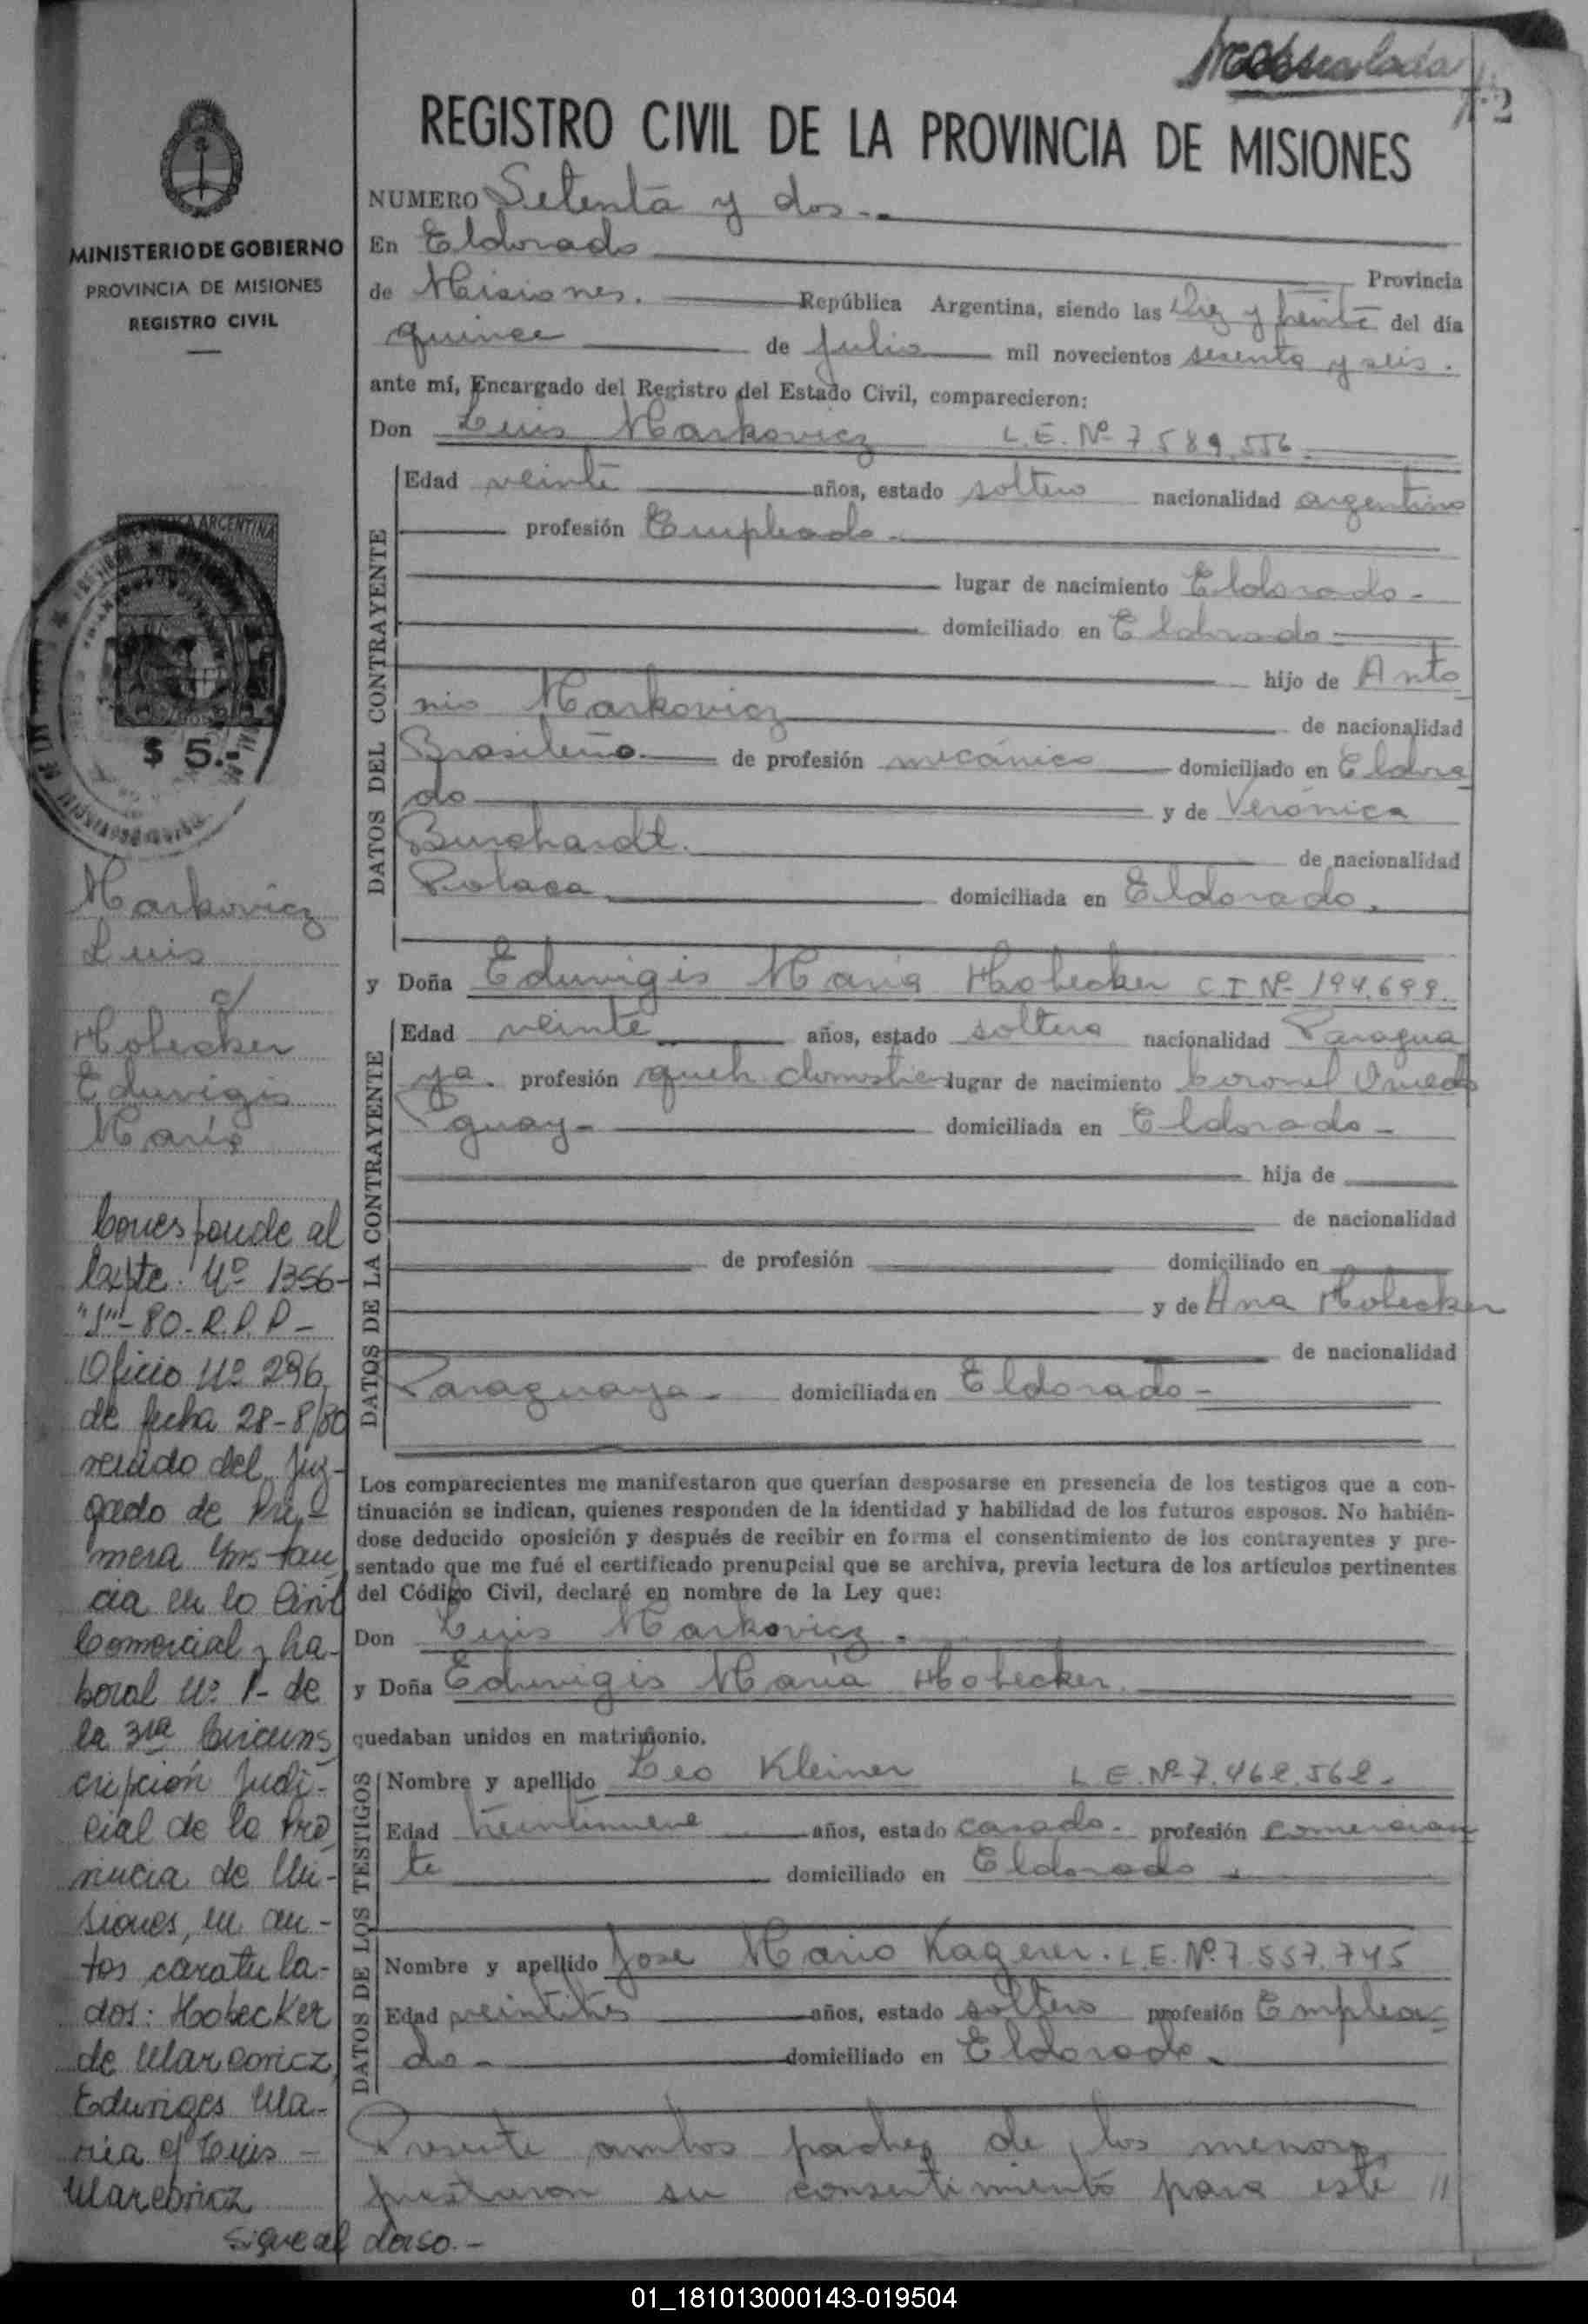 72
REGISTRO CIVIL DE LA PROVINCIA DE MISIONES
MINISTERIO DE GOBIERNO
PROVINCIA DE MISIONES
REGISTRO CIVIL
NUMERO Setenta y dos.-
En Eldorado Provincia
de Misiones. República Argentina, siendo las diez y treinta del día
quince de Julio mil novecientos sesenta y seis.
ante mí, Encargado del Registro del Estado Civil, comparecieron:
Don Luis Markovicz L.E. Nº 7589.556.
DATOS DEL CONTRAYENTE
Edad veinte años, estado soltero nacionalidad argentino
profesión Empleado.
lugar de nacimiento Eldorado-
domiciliado en Eldorado
hijo de Anto
nio Markovicz de nacionalidad
Brasileño. de profesión mecánico domiciliado en Eldora
do y de Verónica
Burchardt. de nacionalidad
Polaca domiciliada en Eldorado.
y Doña Eduvigis María Hobecker C I Nº 194.699.
DATOS DE LA CONTRAYENTE
Edad veinte años, estado soltera nacionalidad Paragua
ya. profesión queh. domestic lugar de nacimiento Coronel Oviedo
Pguay- domiciliada en Eldorado-
hija de
de nacionalidad
de profesión domiciliado en
y de Ana Hobecker
de nacionalidad
Paraguaya- domiciliada en Eldorado-
Los comparecientes me manifestaron que querían desposarse en presencia de los testigos que a con-
tinuación se indican, quienes responden de la identidad y habilidad de los futuros esposos. No habién-
dose deducido oposición y después de recibir en forma el consentimiento de los contrayentes y pre-
sentado que me fué el certificado prenupcial que se archiva, previa lectura de los artículos pertinentes
del Código Civil, declaré en nombre de la Ley que:
Don Luis Markovicz.
y Doña Eduvigis María Hobecker.
quedaban unidos en matrimonio.
DATOS DE LOS TESTIGOS
Nombre y apellido Leo Kleiner L.E. Nº 7.462.562.
Edad años, estado casado- profesión comercian
te domiciliado en Eldorado.
Nombre y apellido Jose Mario Kagerer. L.E. Nº. 7.557.745
Edad veintitrés años, estado soltero profesión Emplea-
do- domiciliado en Eldorado.
Presente ambos padres de los menores,
prestaron su consentimiento para este //
REPUBLICA ARGENTINA
$ 5.-
Markovicz
Luis
c/
Hobecker
Eduvigis
María
Corresponde al
Expte. Nº 1356-
"J"-80-R.P.P-
Oficio Nº 296
de fecha 28-8/80
venido del Juz-
gado de Pri-
mera Ins-tan
cia en lo Civil
Comercial y La-
boral Nº 1- de
la 3ra Circuns
cripción Judi-
cial de la Pro
vincia de Mi-
siones, en au-
tos caratula-
dos: Hobecker
de Marcovicz,
Eduviges Ma-
ria c/ Luis-
Marcovicz
sigue al dorso.-
01_181013000143-019504